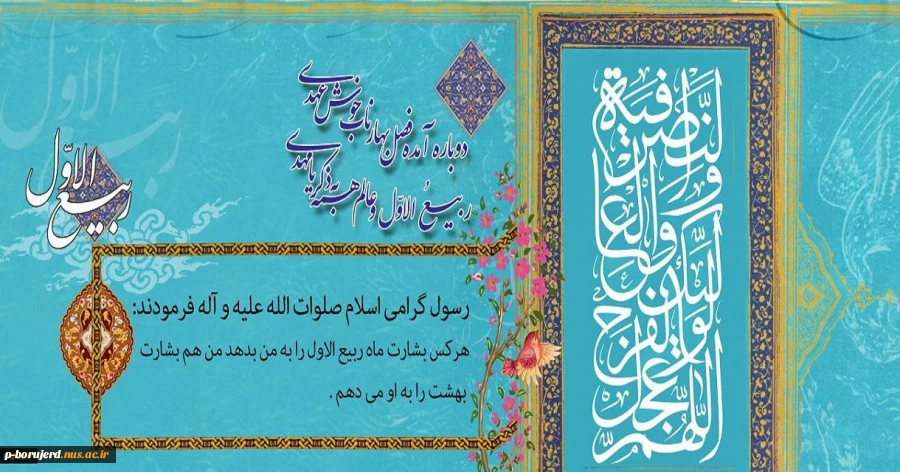 دوباره آمده فصل بهار ناب خوش عهدی
ربیعُ الاوّل و عالم همه به ذکر یا مهدی
ربیع الاوّل
رسول گرامی اسلام صلوات الله علیه و آله فرمودند:
هرکس بشارت ماه ربیع الاول را به من بدهد من هم بشارت
بهشت را به او می دهم .
اللهم عجل لولیک الفرج
والعافیة والنصر
p-borujerd.nus.ac.ir